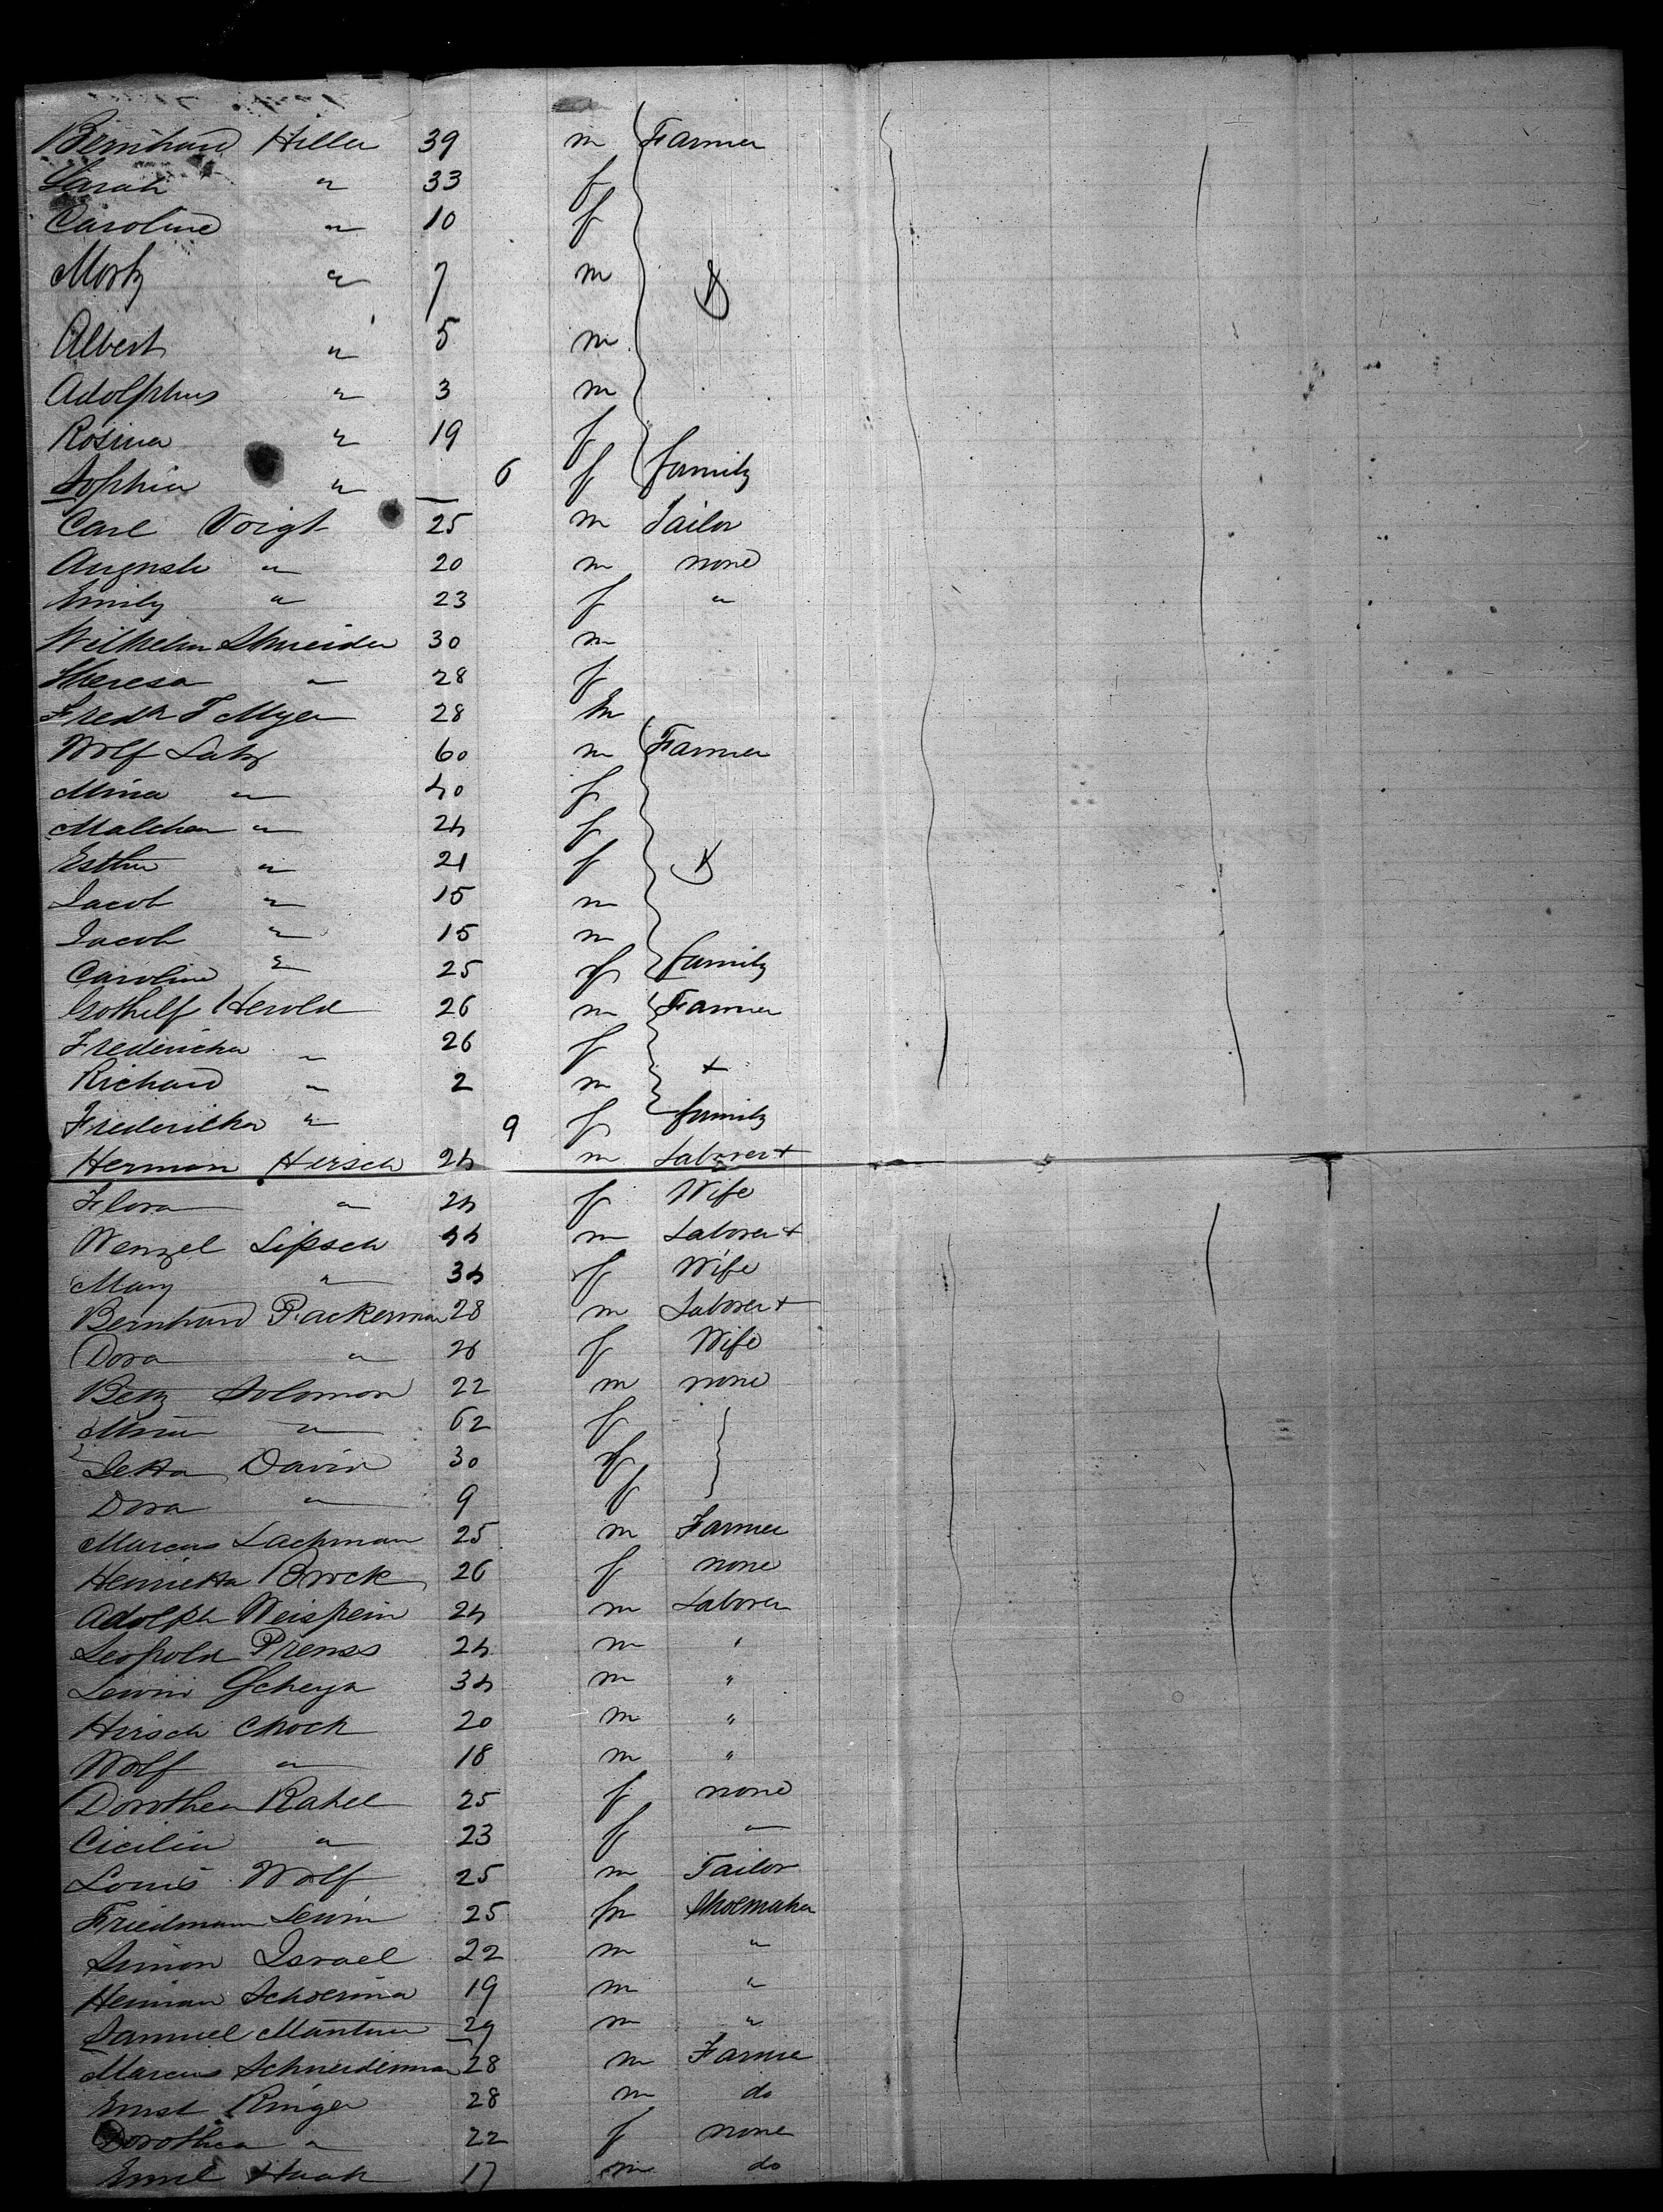 Bernhard Heller 39 m Farmer
Sarah " 33 f
Caroline " 10 f
Moritz " 7 m
Albert " 5 m
Adolphus " 3 m
Rosina " 19 f
Sophia " 6 f family
Carl Voigt 25 m Tailor
Auguste " 20 m none
Emily " 23 f "
Wilhelm Shneider 30 m
Theresa " 28 f
Fredk T Myer 28 m
Wolf Latz 60 m Farmer
Mina " 40 f
Malchen " 24 f
Esther " 21 f
Jacob " 15 m
Jacob " 15 m
Caroline " 25 f family
Gothelf Herold 26 m Farmer
Fredericka " 26 f
Richard " 2 m +
Fredericka " 9 f family
Herman Hirsch 24 m Laborer +
Flora " 24 f Wife
Wenzel Lipsch 44 m Laborer +
Mary " 34 f Wife
Bernhard Packerman 28 m Laborer +
Dora " 26 f Wife
Betz Solomon 22 m none
" 62 f
Jetta David 30 f
Dora " 9 f
Marcus Lachman 25 m Farmer
Henrietta Brock 26 f none
Adolph 24 m Laborer
Leopold Preuss 24 m "
Lewin 34 m "
Hirsch Chock 20 m "
Wolf " 18 m "
Dorothea Rahel 25 f none
Cicilia " 23 f "
Louis Wolf 25 m Tailor
Friedmann Lewin 25 m Shoemaker
Simon Israel 22 m "
Heiman 19 m "
Samuel 29 m "
Marcus Schneiderman 28 m Farmer
Ernst Ringer 28 m do
Dorothea " 22 f none
Emil Haak 17 m do